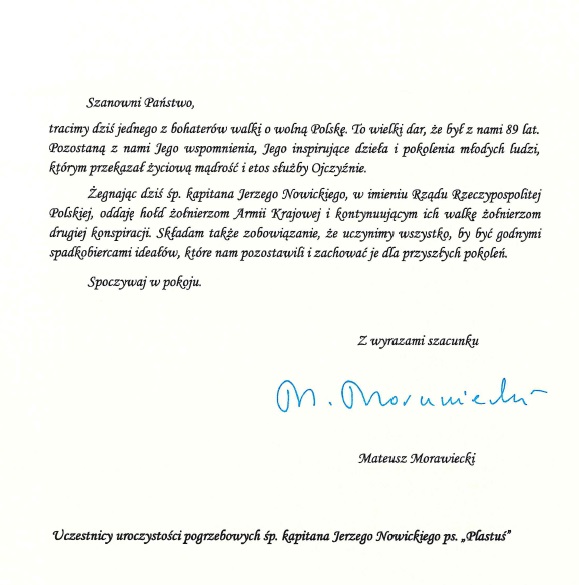 Szanowni Państwo,
tracimy dziś jednego z bohaterów walki o wolną Polskę. To wielki dar, że był z nami 89 lat.
Pozostaną z nami Jego wspomnienia, Jego inspirujące dzieła i pokolenia młodych ludzi,
którym przekazał życiową mądrość i etos służby Ojczyźnie.
Żegnając dziś śp. kapitana Jerzego Nowickiego, w imieniu Rządu Rzeczypospolitej
Polskiej, oddaję hołd żołnierzom Armii Krajowej i kontynuującym ich walkę żołnierzom
drugiej konspiracji. Składam także zobowiązanie, że uczynimy wszystko, by być godnymi
spadkobiercami ideałów, które nam pozostawili i zachować je dla przyszłych pokoleń.
Spoczywaj w pokoju.
Z wyrazami szacunku
M. Morawiecki
Mateusz Morawiecki
Uczestnicy uroczystości pogrzebowych śp. kapitana Jerzego Nowickiego ps. „Plastuś”